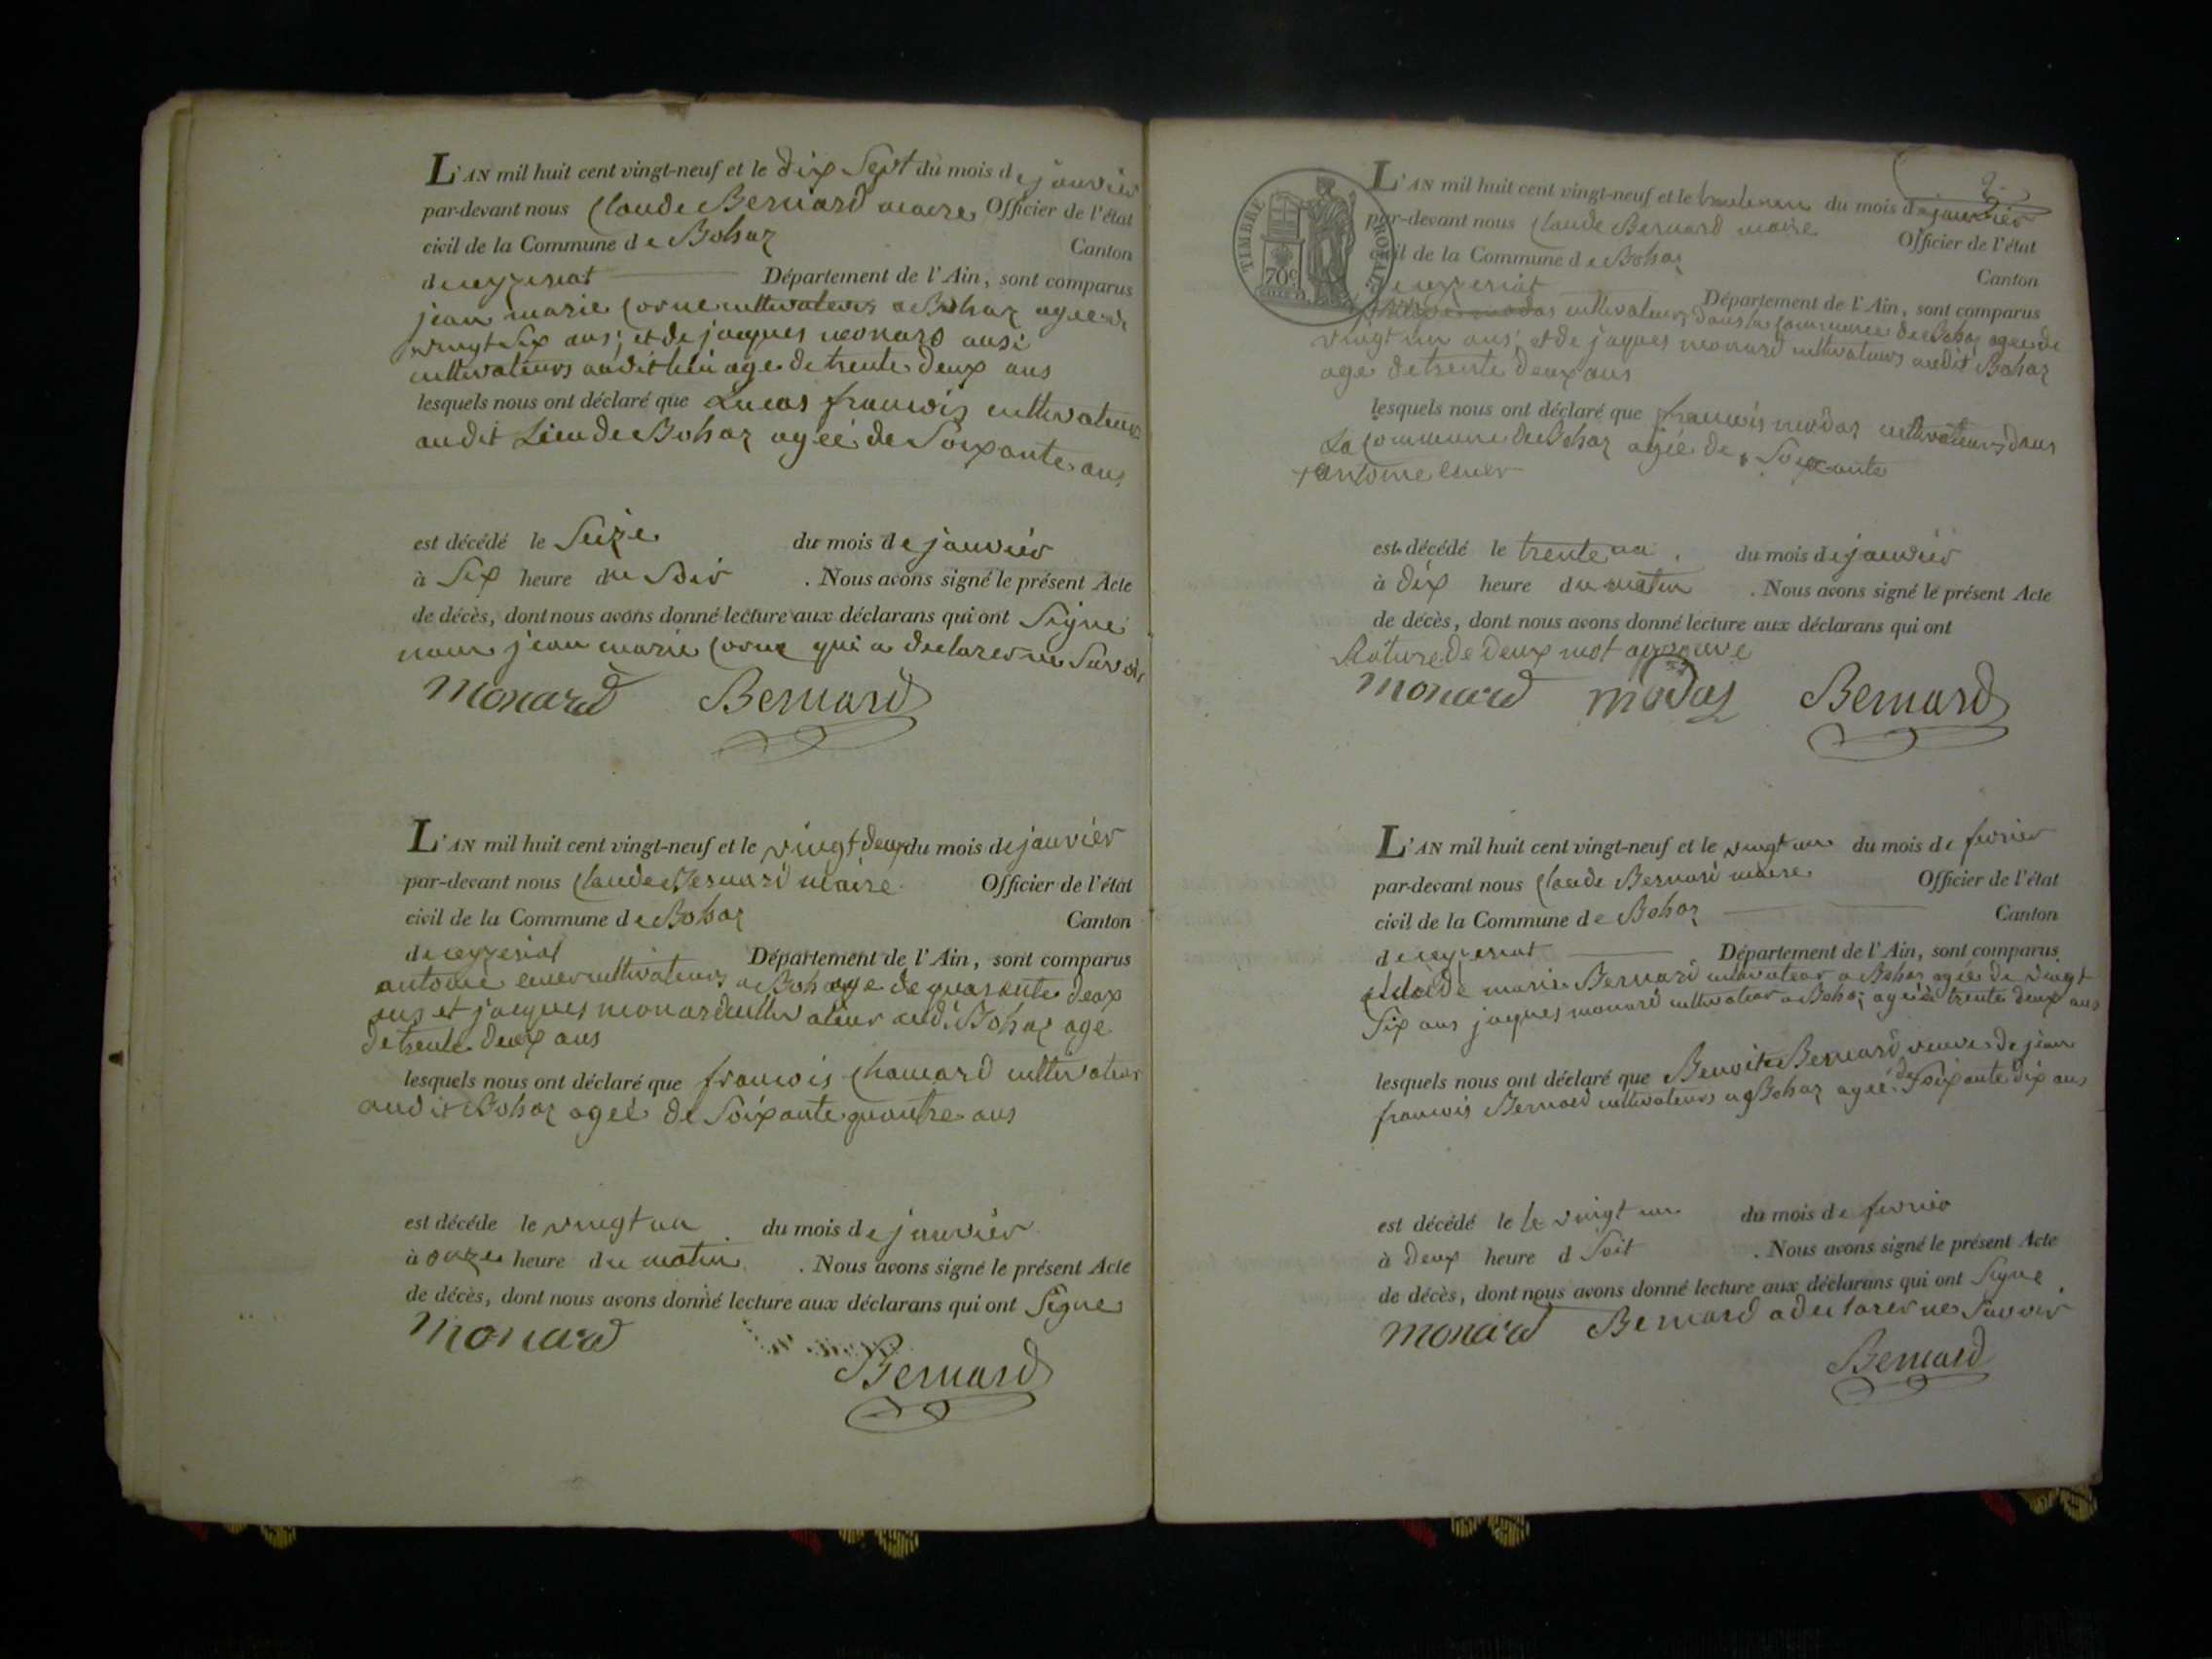 L'AN mil huit cent vingt-neuf et le dix Sept du mois de janvier
par-devant nous Claude Bernard maire Officier de l'état
civil de la Commune de Bohaz Canton
de ceyzeriat Département de l'Ain, sont comparus
jean marie Corne cultivateurs a Bohaz agee de
vingt Six ans; et de jacques monard ausi
cultivateurs audit lieu age de trente deux ans
lesquels nous ont déclaré que Lucas francois cultivateur
audit Lieu de Bohaz agéé de Soixante ans
est décédé le Seize du mois de janvier
à Six heure du Soir . Nous avons signé le présent Acte
de décès, dont nous avons donné lecture aux déclarans qui ont Signe
non jean marie Corne qui a declarer ne Savoir
monard Bernard
L'AN mil huit cent vingt-neuf et le vingt deux du mois de janvier
par-devant nous Claude Bernard maire Officier de l'état
civil de la Commune de Bohaz Canton
de ceyzeriat Département de l'Ain, sont comparus
antoine cultivateurs a Bohaz age de quarante deux
ans et jacques monard cultivateur audi Bohaz age
de trente deux ans
lesquels nous ont déclaré que francois Chanard cultivateur
audit Bohaz ageé de Soixante quantre ans
est décédé le vingt un du mois de janvier
à onze heure du matin . Nous avons signé le présent Acte
de décès, dont nous avons donné lecture aux déclarans qui ont Signe
monard
Bernard
2
TIMBRE ROYAL
70c
L'AN mil huit cent vingt-neuf et le du mois de janvier
par-devant nous Claude Bernard maire Officier de l'état
civil de la Commune de Bohaz Canton
de ceyzeriat Département de l'Ain, sont comparus
modas cultivateurs dans la commune de Bohaz agee de
vingt un ans; et de jaques monard cultivateurs audit Bohaz
age de trente deux ans
lesquels nous ont déclaré que francois modas cultivateurs dans
La Commune de Bohaz agéé de Soixante
+ antoine
est décédé le trente un du mois de janvier
à dix heure du matin . Nous avons signé le présent Acte
de décès, dont nous avons donné lecture aux déclarans qui ont
Rature de deux mot approuve
monard modas Bernard
L'AN mil huit cent vingt-neuf et le vingt un du mois de fevrier
par-devant nous Claude Bernard maire Officier de l'état
civil de la Commune de Bohaz Canton
de ceyzeriat Département de l'Ain, sont comparus
marie Bernard cultivateur a Bohaz agéé de vingt
Six ans jaques monard cultivateur a Bohaz agéé de trente deux ans
lesquels nous ont déclaré que Benoite Bernard veuve de jean
francois Bernard cultivateurs a Bohaz agéé de Soixante dix ans
est décédé le le vingt un du mois de fevrier
à deux heure d Soit . Nous avons signé le présent Acte
de décès, dont nous avons donné lecture aux déclarans qui ont Signe
monard Bernard a declarer ne Savoir
Bernard